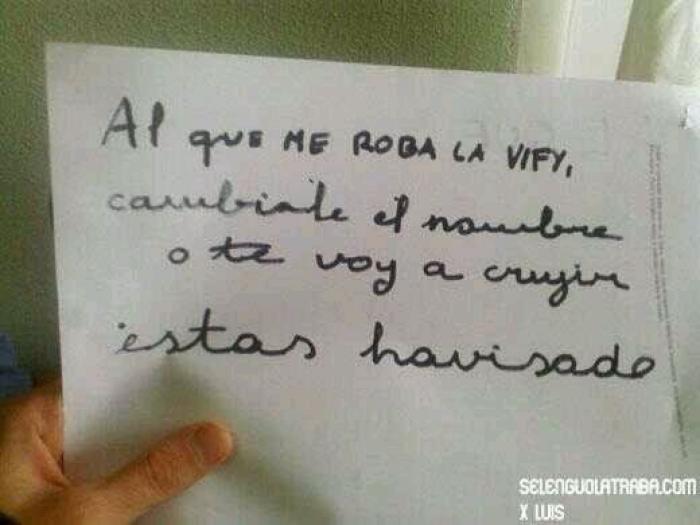 Al que ME ROBA LA VIFY,
cambiale el nombre
o te voy a crujir
estas havisado
SELENGUOLATRABA.COM
X LUIS